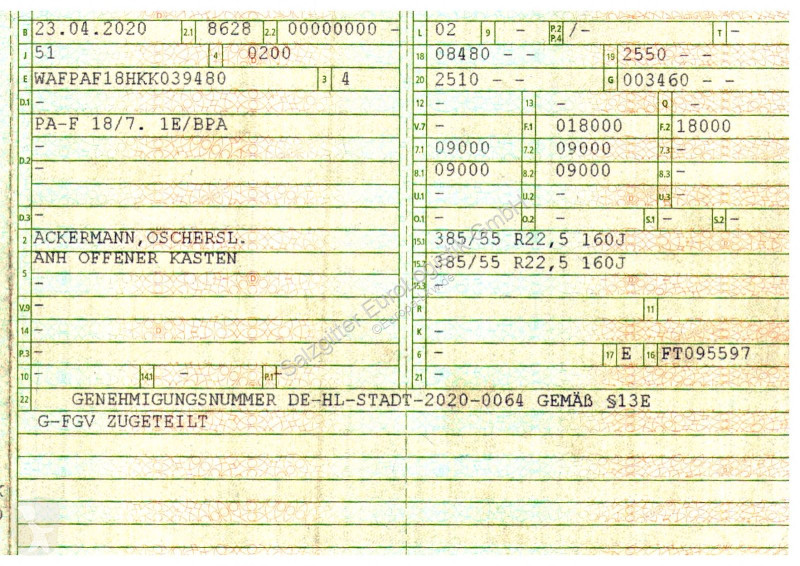 B 23.04.2020 2.1 8628 2.2 00000000 -
J 51 4 0200
E WAFPAF18HKK039480 3 4
D.1 -
PA-F 18/7. 1E/BPA
D.2 -
D.3 -
2 ACKERMANN,OSCHERSL.
ANH OFFENER KASTEN
5 -
V.9 -
14 -
P.3 -
10 - 14.1 - P.1 -
L 02 9 - P.2 P.4 /- T -
18 08480 - - 19 2550 - -
20 2510 - - G 003460 - -
12 - 13 - Q -
V.7 - F.1 018000 F.2 18000
7.1 09000 7.2 09000 7.3 -
8.1 09000 8.2 09000 8.3 -
U.1 - U.2 - U.3 -
O.1 - O.2 - S.1 - S.2 -
15.1 385/55 R22,5 160J
15.2 385/55 R22,5 160J
15.3 -
R - 11
K -
6 - 17 E 16 FT095597
21 -
22 GENEHMIGUNGSNUMMER DE-HL-STADT-2020-0064 GEMÄß §13E
G-FGV ZUGETEILT
Salzgitter EuroLogistik GmbH